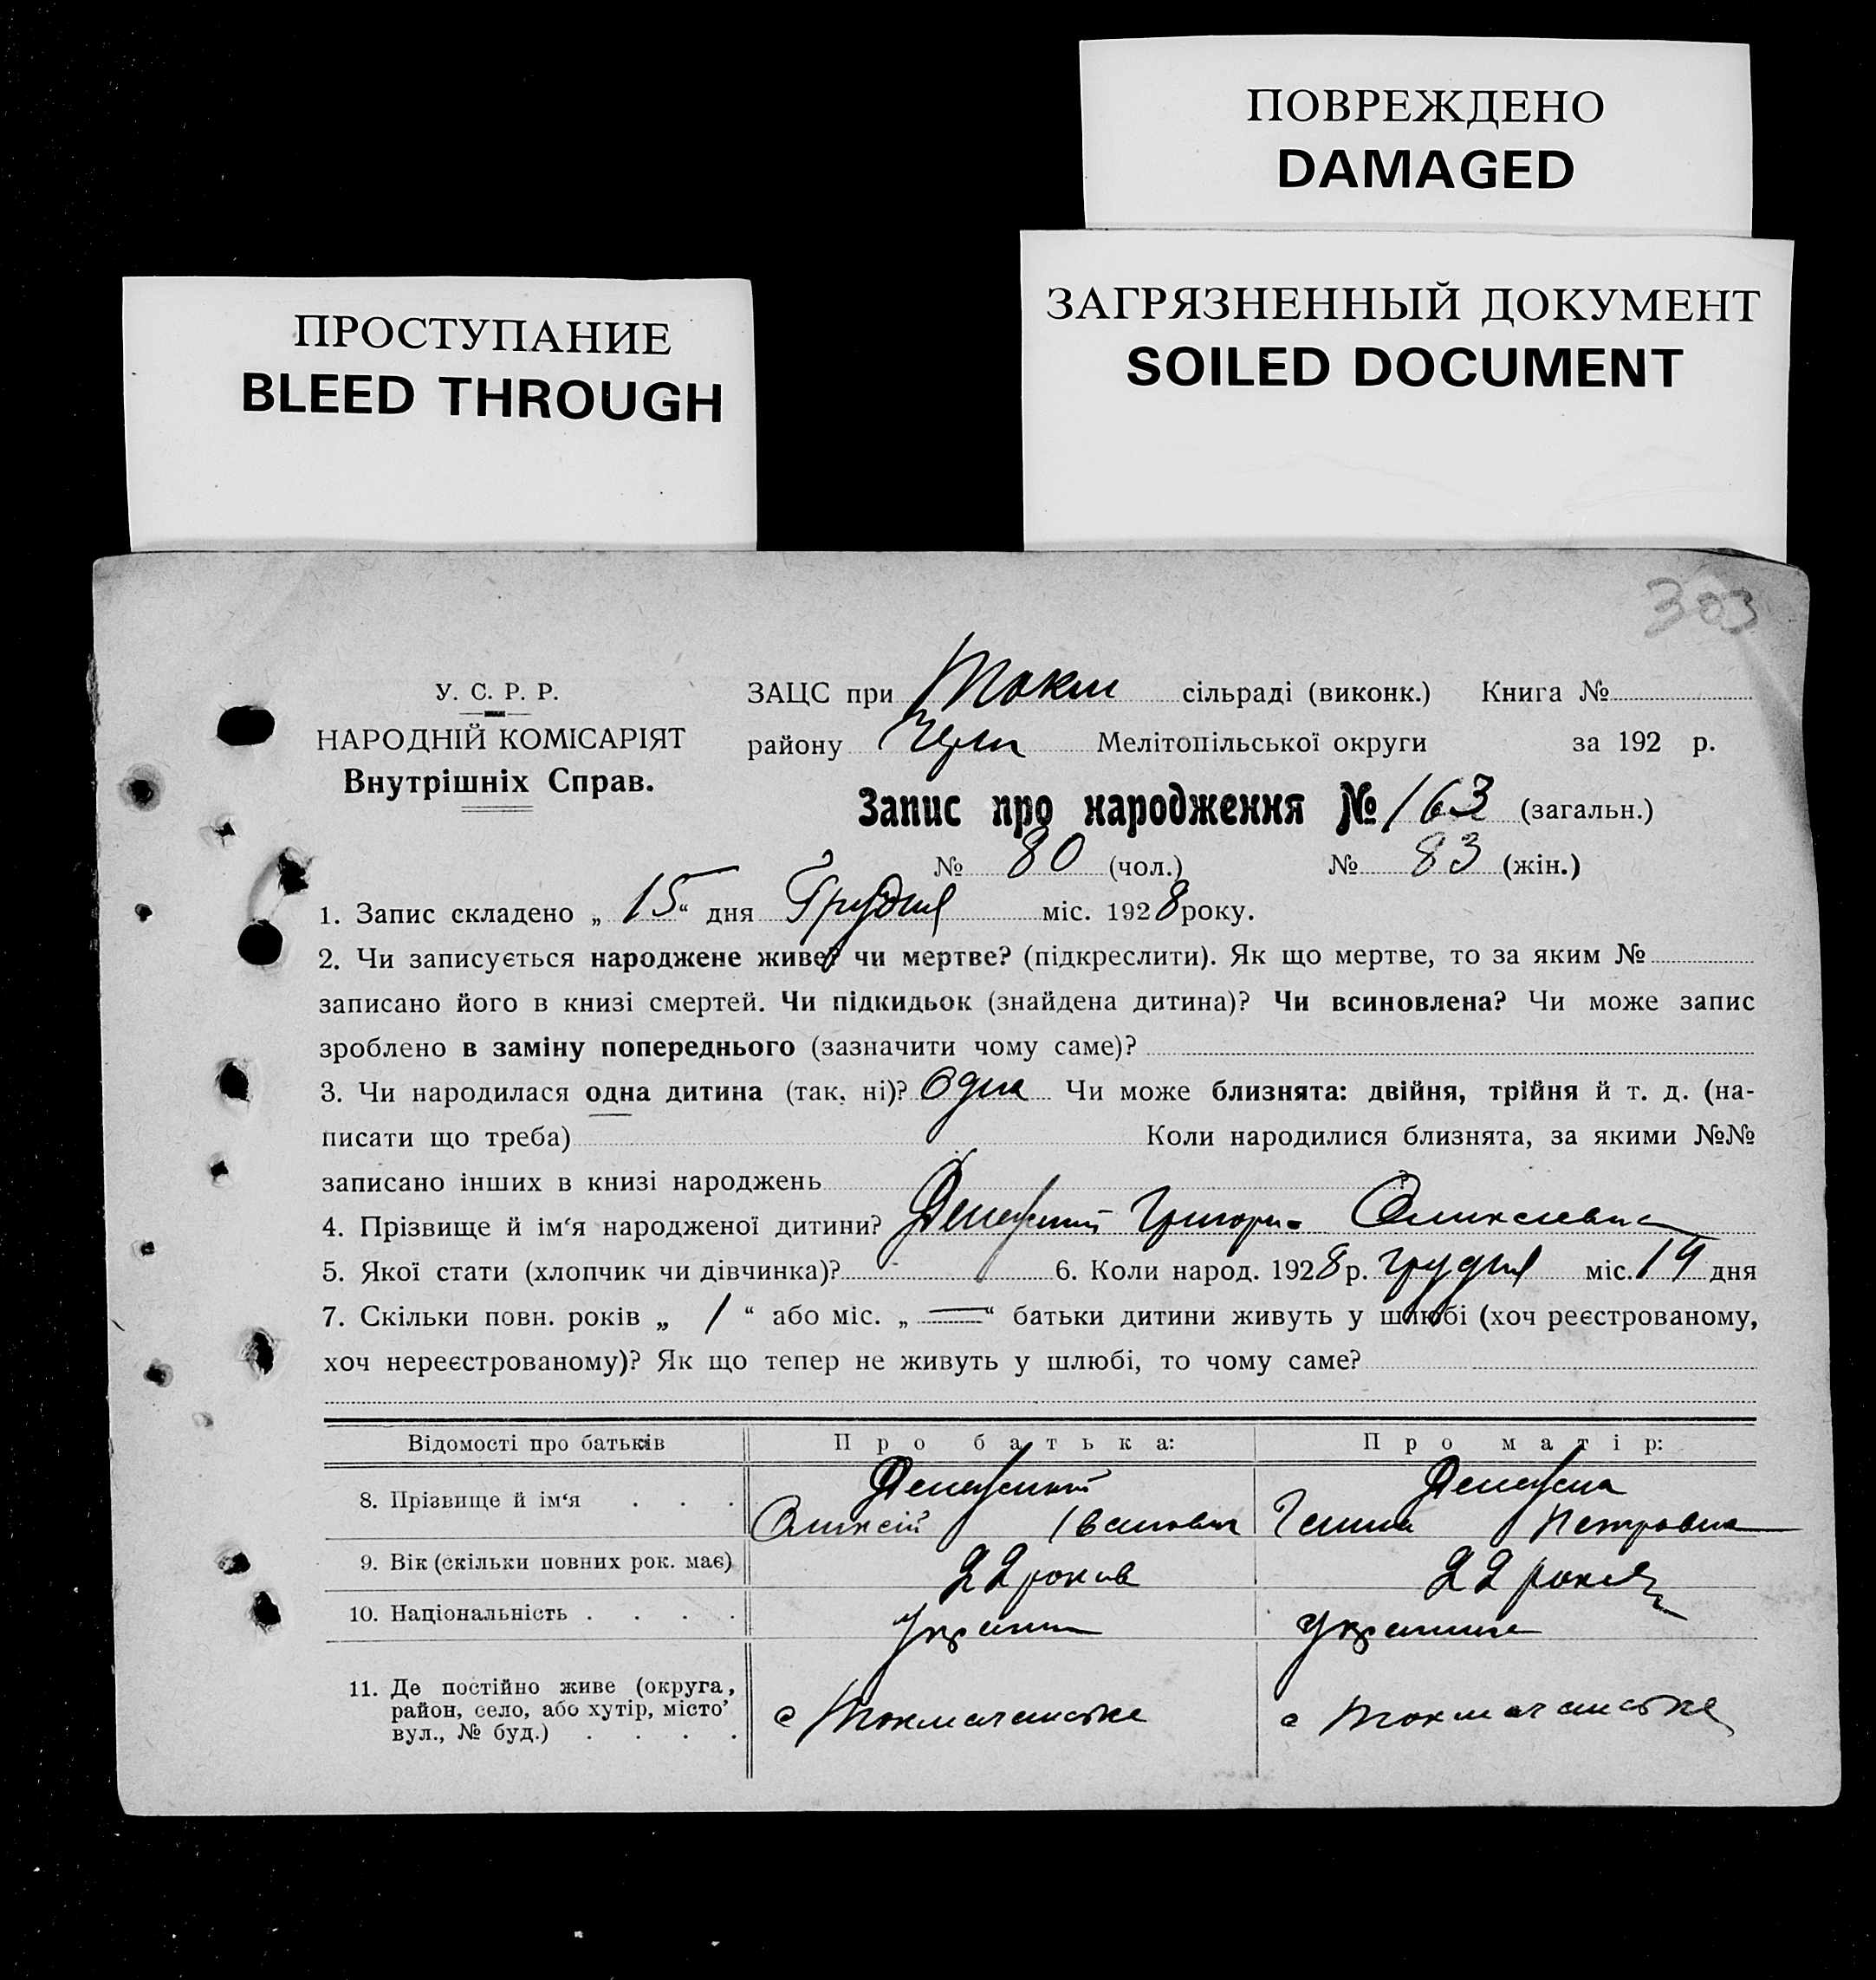 ПОВРЕЖДЕНО
DAMAGED
ЗАГРЯЗНЕННЫЙ ДОКУМЕНТ
SOILED DOCUMENT
ПРОСТУПАНИЕ
BLEED THROUGH
303
У. С. Р. Р.
НАРОДНІЙ КОМІСАРІЯТ
Внутрішніх Справ.
ЗАЦС при Токм сільраді (виконк.) Книга №
району Мелітопільської округи за 192 р.
Запис про народження № 163 (загальн.)
№ 80 (чол.) № 83 (жін.)
1. Запис складено „ 15 “ дня Грудня міс. 1928 року.
2. Чи записується народжене живе? чи мертве? (підкреслити). Як що мертве, то за яким №
записано його в книзі смертей. Чи підкидьок (знайдена дитина)? Чи всиновлена? Чи може запис
зроблено в заміну попереднього (зазначити чому саме)?
3. Чи народилася одна дитина (так, ні)? Одна Чи може близнята: двійня, трійня й т. д. (на-
писати що треба) Коли народилися близнята, за якими №№
записано інших в книзі народжень ?
4. Прізвище й ім‘я народженої дитини?
5. Якої стати (хлопчик чи дівчинка)? 6. Коли народ. 1928 р. грудня міс. 14 дня
7. Скільки повн. років „ 1 “ або міс. „ — “ батьки дитини живуть у шлюбі (хоч реєстрованому,
хоч нереєстрованому)? Як що тепер не живуть у шлюбі, то чому саме?
Відомості про батьків
Про батька:
Про матір:
8. Прізвище й ім‘я . . .
Олексій Іванович
Петровна
9. Вік (скільки повних рок. має)
22 років
22 років
10. Національність . . . .
11. Де постійно живе (округа,
район, село, або хутір, місто’
вул., № буд.) . . . .
с Токмачанське
с Токмачанське